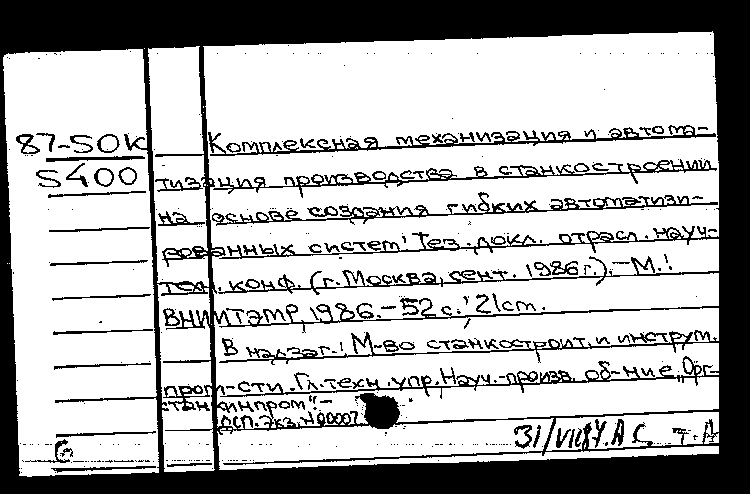 87-SOK
S400
Комплексная механизация и автома-
тизация производства в станкостроении
на основе создания гибких автоматизи-
рованных систем: Тез. докл. отрасл. науч.-
техн. конф. (г. Москва, сент. 1986 г.).-М.:
ВНИИТЭМР, 1986.-52 с.; 21cm.
В надзаг.: М-во станкостроит. и инструм.
пром-сти. Гл. техн. упр. Науч.-произв. об-ние „Орг-
станкинпром".-
ДСП. Экз. N 00007
31/VII 87. A C.
6